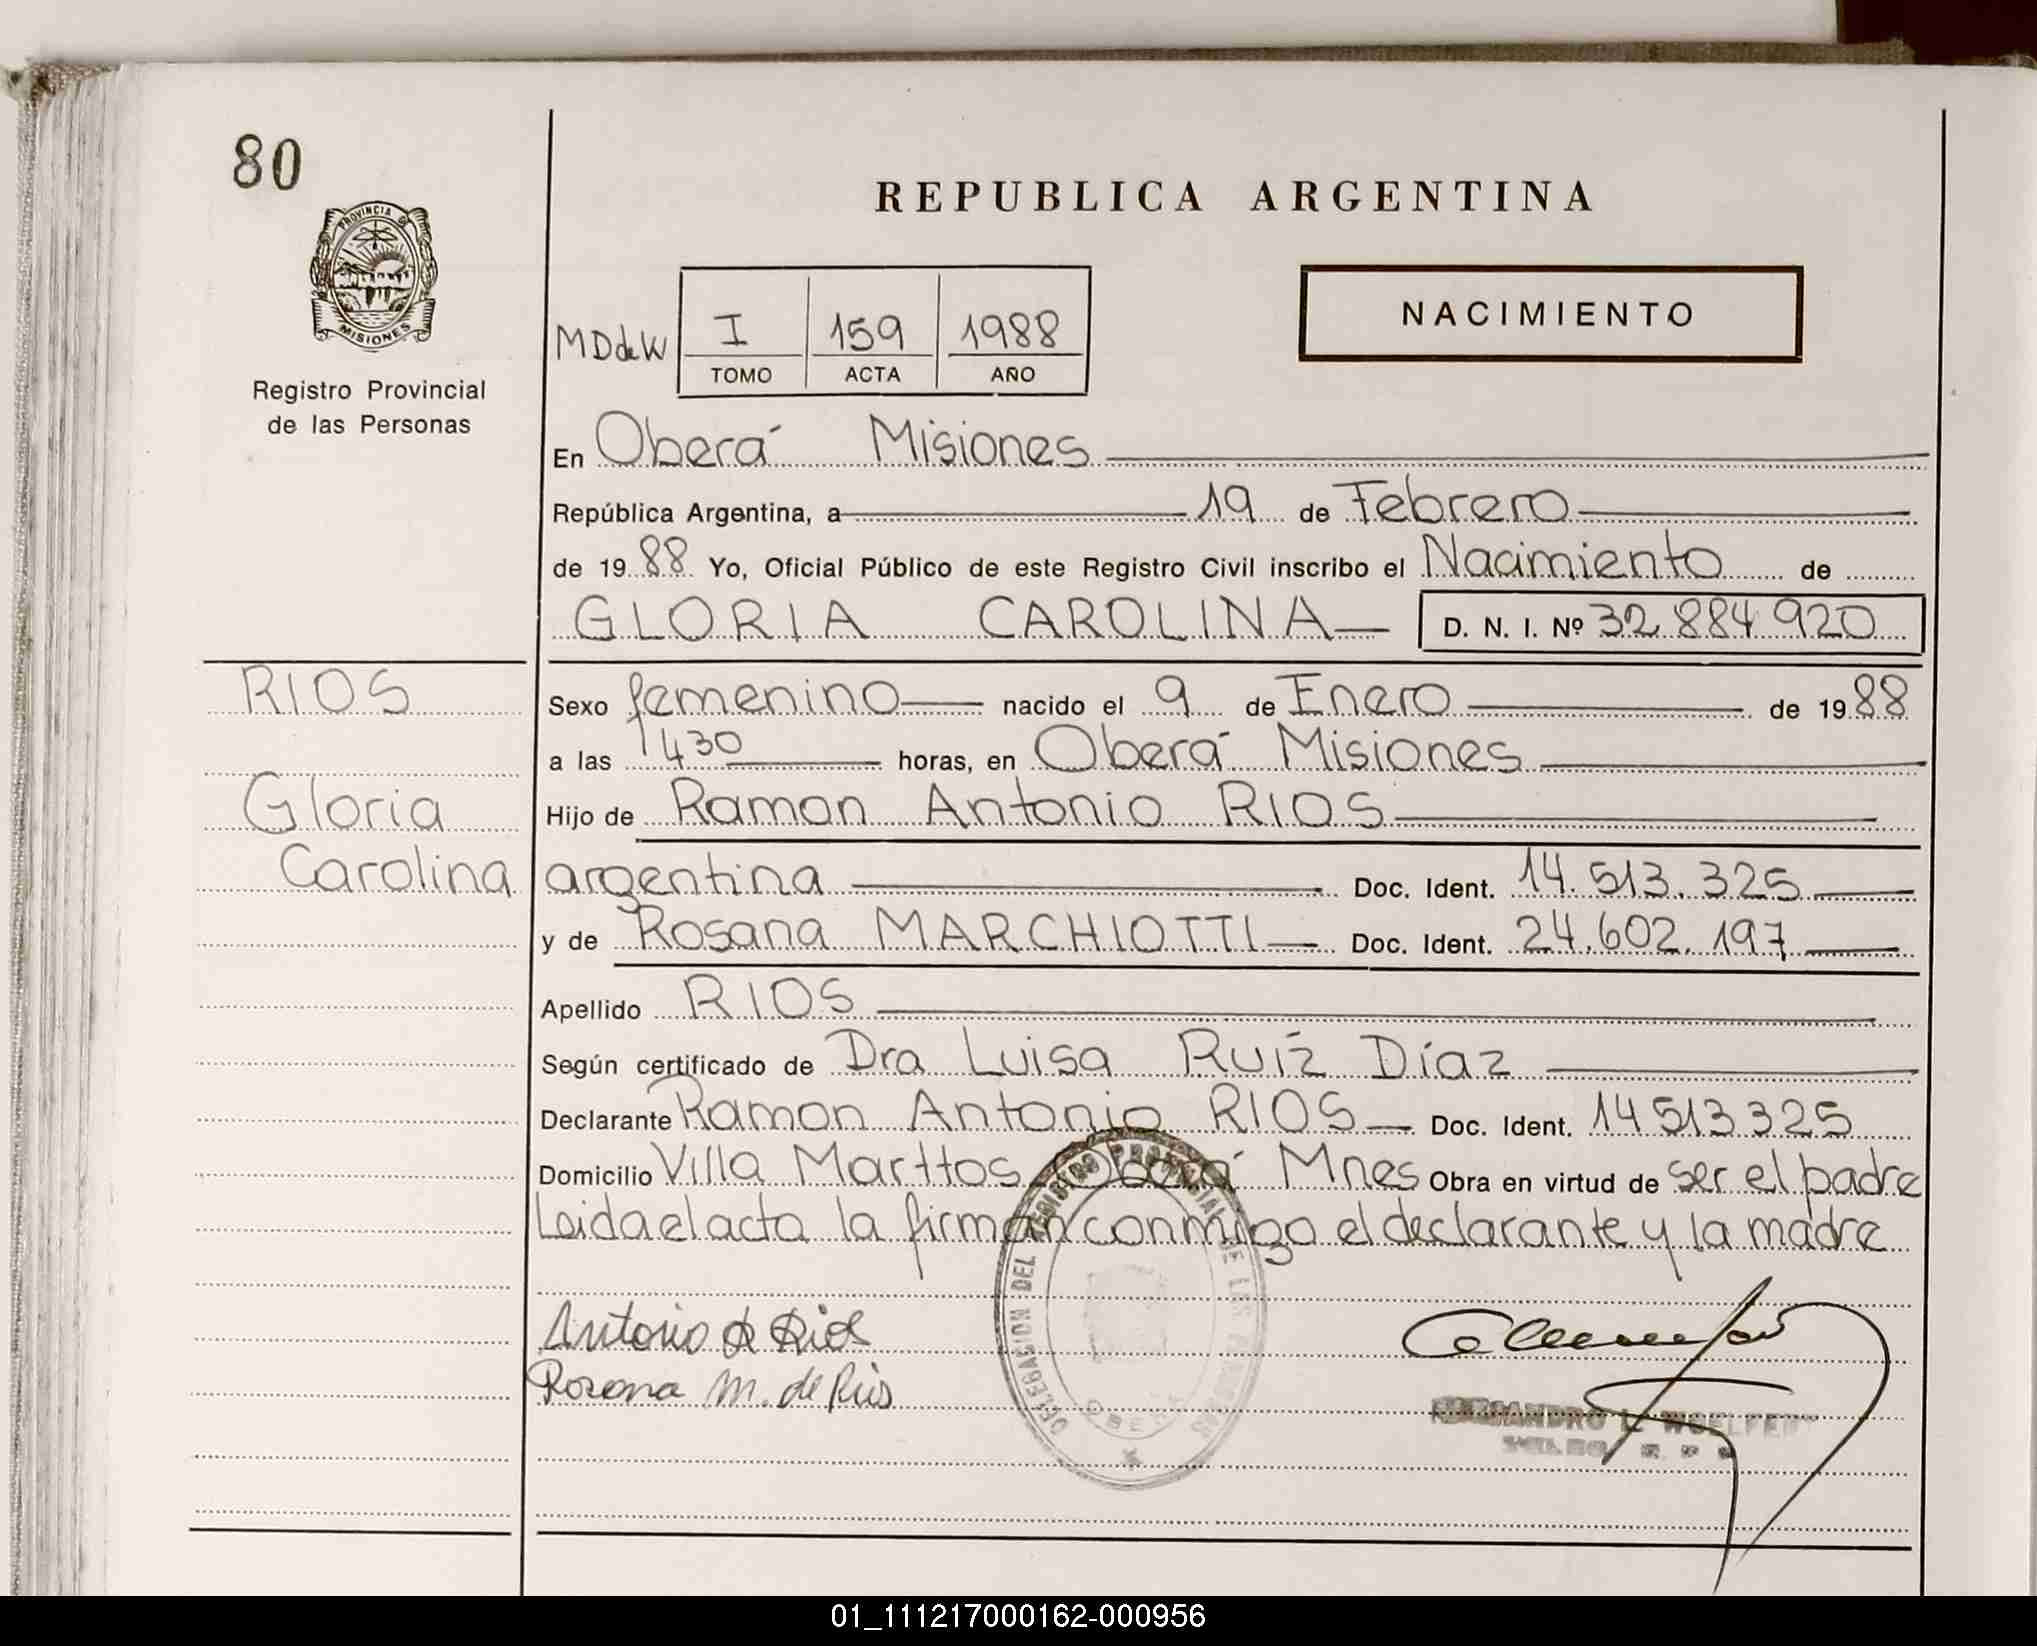 80
REPUBLICA ARGENTINA
PROVINCIA DE MISIONES
Registro Provincial
de las Personas
NACIMIENTO
MDdeW I 159 1988
TOMO ACTA AÑO
En Oberá Misiones
República Argentina, a 19 de Febrero
de 1988 Yo, Oficial Público de este Registro Civil inscribo el Nacimiento de
GLORIA CAROLINA D. N. I. Nº 32.884.920
RIOS
Gloria
Carolina
Sexo femenino nacido el 9 de Enero de 1988
a las 1430 horas, en Oberá Misiones
Hijo de Ramon Antonio RIOS
argentina Doc. Ident. 14.513.325
y de Rosana MARCHIOTTI Doc. Ident. 24.602.197
Apellido RIOS
Según certificado de Dra Luisa Ruíz Díaz
Declarante Ramon Antonio RIOS Doc. Ident. 14513325
Domicilio Villa Marttos Oberá Mnes Obra en virtud de ser el padre
Leida el acta la firman conmigo el declarante y la madre
Antonio R Rios
Rosana M. de Rios
DELEGACION DEL REGISTRO PROVINCIAL DE LAS PERSONAS
OBERA
01_111217000162-000956